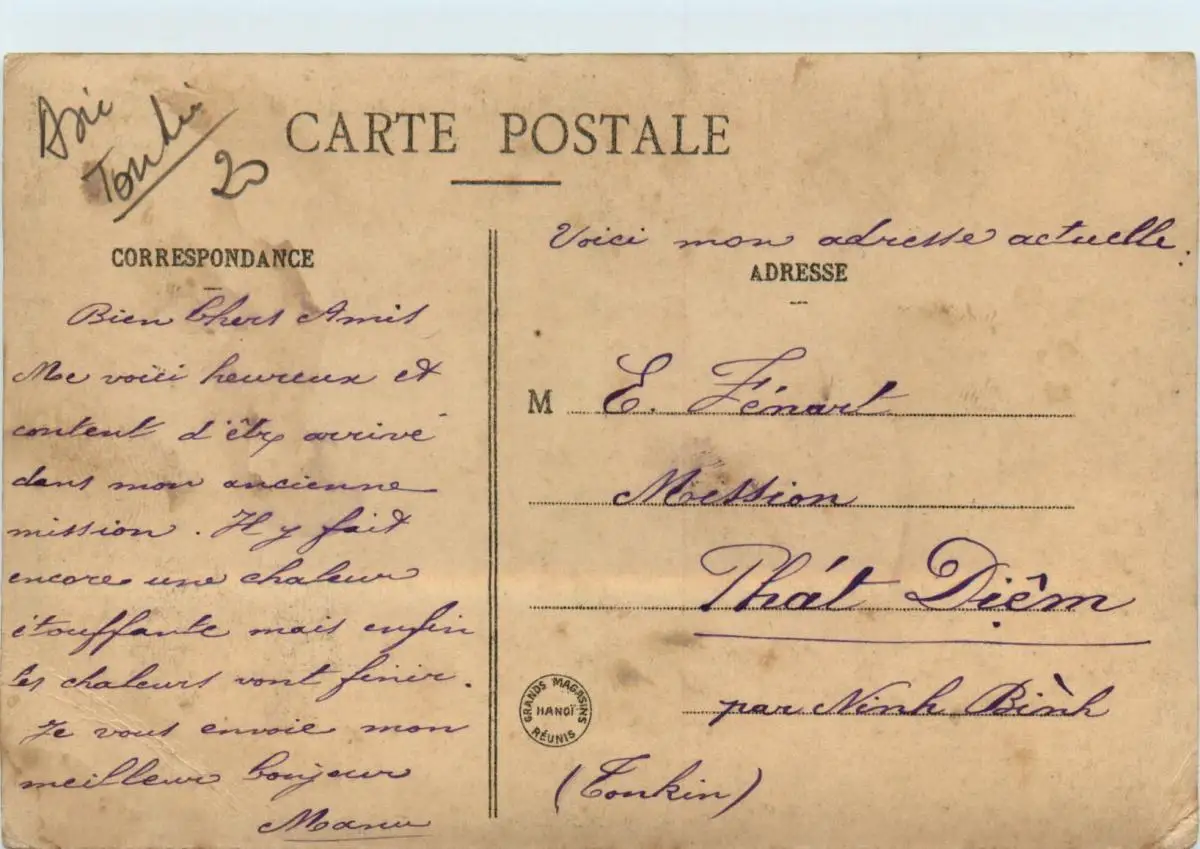 Asie
Tonkin
20
CARTE POSTALE
CORRESPONDANCE
Bien Chers Amis
Me voici heureux et
content d'être arrivé
dans mon ancienne
mission. Il y fait
encore une chaleur
étouffante mais enfin
les chaleurs vont finir.
Je vous envoie mon
meilleur bonjour
Voici mon adresse actuelle.
ADRESSE
M E. Fénart
Mission
Phát Diệm
par Ninh Bình
(Tonkin)
GRANDS MAGASINS
HANOÏ
RÉUNIS